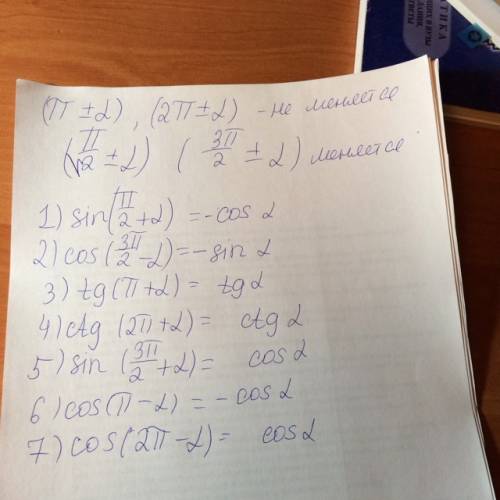 (π ± α) , (2π ± α) - не меняется
(π/2 ± α) (3π/2 ± α) меняется
1) sin(π/2 + α) = -cos α
2) cos(3π/2 - α) = - sin α
3) tg(π + α) = tg α
4) ctg (2π + α) = ctg α
5) sin (3π/2 + α) = cos α
6) cos(π - α) = - cos α
7) cos(2π - α) = cos α